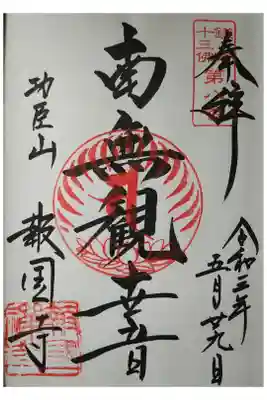 鎌倉
十三佛第八番
奉拝
令和三年
五月廿九日
南無観世音
功臣山
報国寺